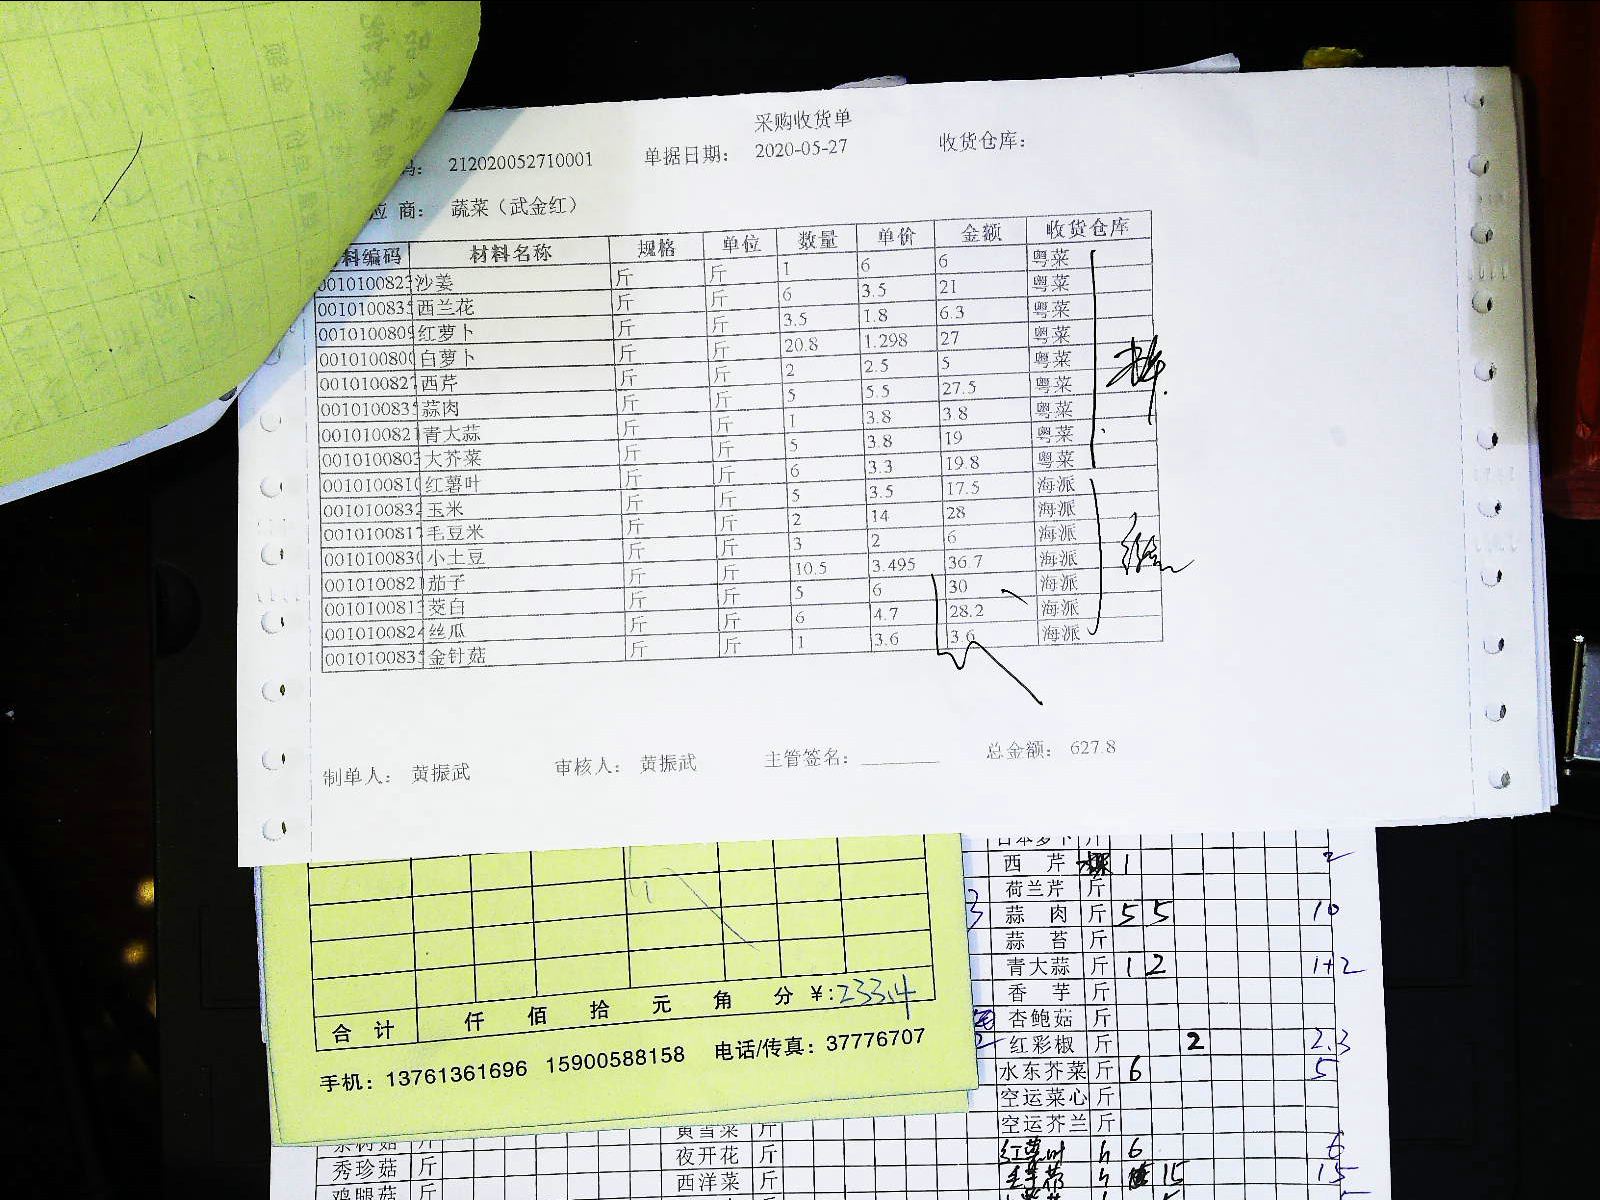 采购收货单
码： 212020052710001 单据日期： 2020-05-27 收货仓库：
应 商： 蔬菜（武金红）
料编码 材料名称 规格 单位 数量 单价 金额 收货仓库
001010082 沙姜 斤 斤 1 6 6 粤菜
001010083 西兰花 斤 斤 6 3.5 21 粤菜
001010080 红萝卜 斤 斤 3.5 1.8 6.3 粤菜
001010080 白萝卜 斤 斤 20.8 1.298 27 粤菜
001010082 西芹 斤 斤 2 2.5 5 粤菜
001010083 蒜肉 斤 斤 5 5.5 27.5 粤菜
001010082 青大蒜 斤 斤 1 3.8 3.8 粤菜
001010080 大芥菜 斤 斤 5 3.8 19 粤菜
001010081 红薯叶 斤 斤 6 3.3 19.8 粤菜
001010083 玉米 斤 斤 5 3.5 17.5 海派
001010081 毛豆米 斤 斤 2 14 28 海派
001010083 小土豆 斤 斤 3 2 6 海派
001010082 茄子 斤 斤 10.5 3.495 36.7 海派
001010081 茭白 斤 斤 5 6 30 海派
001010082 丝瓜 斤 斤 6 4.7 28.2 海派
001010083 金针菇 斤 斤 1 3.6 3.6 海派
制单人： 黄振武 审核人： 黄振武 主管签名： 总金额： 627.8
合 计 仟 佰 拾 元 角 分 ¥：233.4
手机：13761361696 15900588158 电话/传真：37776707
日本萝卜 斤
西 芹 1 2
荷兰芹 斤
蒜 肉 斤 5 5 10
蒜 苔 斤
青大蒜 斤 1 2 1+2
香 芋 斤
杏鲍菇 斤
红彩椒 斤 2 2.3
水东芥菜 斤 6 5
空运菜心 斤
空运芥兰 斤
红薯叶 6 6
15 15
黄当菜 斤
夜开花 斤
西洋菜 斤
茶树菇 斤
秀珍菇 斤
鸡腿菇 斤